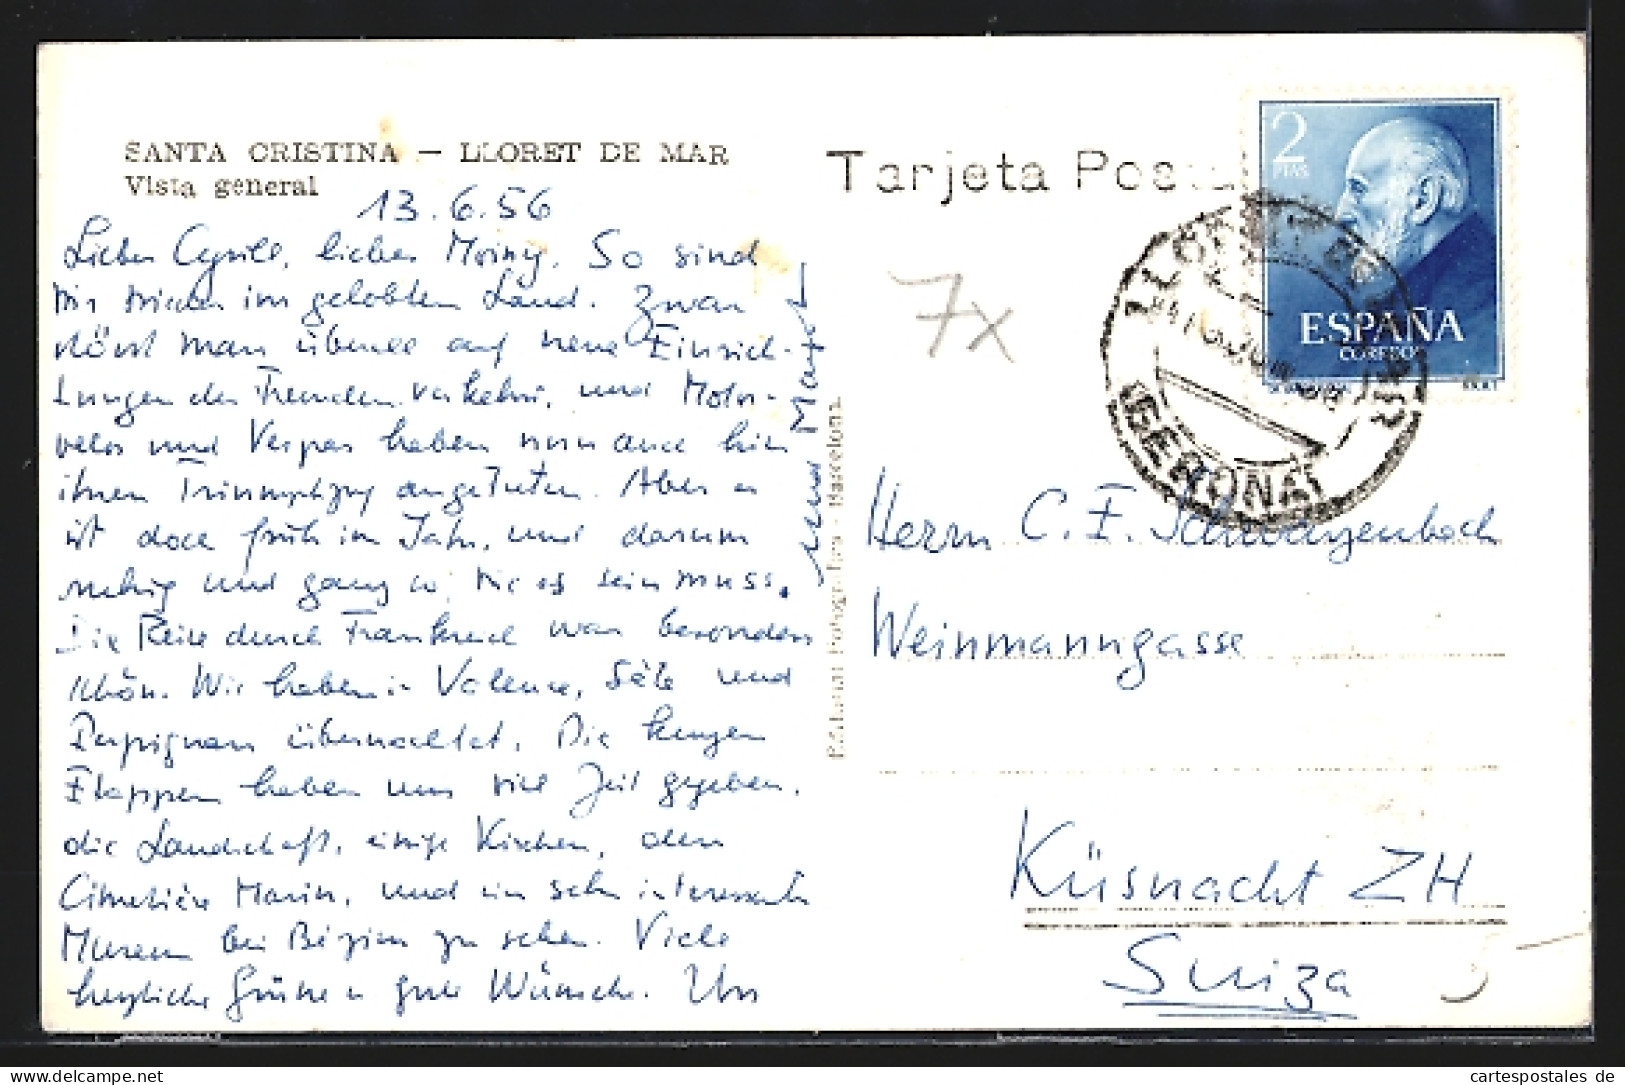 SANTA CRISTINA - LLORET DE MAR
Vista general
13.6.56
Lieber Cyrill, lieber So sind
wir wieder im gelobten Land. Zwar
stösst man überall auf neue Einrich-
tungen des Fremdenverkehrs, und Motor-
velos und Vespas haben nun auch hier
ihren Triumphzug angetreten. Aber es
ist doch früh im Jahr, und darum
ruhig und ganz so, wie es sein muss.
Die Reise durch Frankreich war besonders
schön. Wir haben in Valence, Sète und
Perpignan übernachtet. Die kurzen
Etappen haben uns viel Zeit gegeben,
die Landschaft, einige Kirchen, den
Cimetière Marin, und ein sehr interessantes
Museum bei Bézier zu sehen. Viele
herzliche Grüsse u gute Wünsche.
und
Tarjeta Postal
7x
2
PTAS
ESPAÑA
CORREOS
LLORET DE MAR
GERONA
Barcelona
Herrn C. F. Schwarzenbach
Weinmanngasse
Küsnacht ZH
Suiza
5-
www.cartespostales.de
cartespostales de